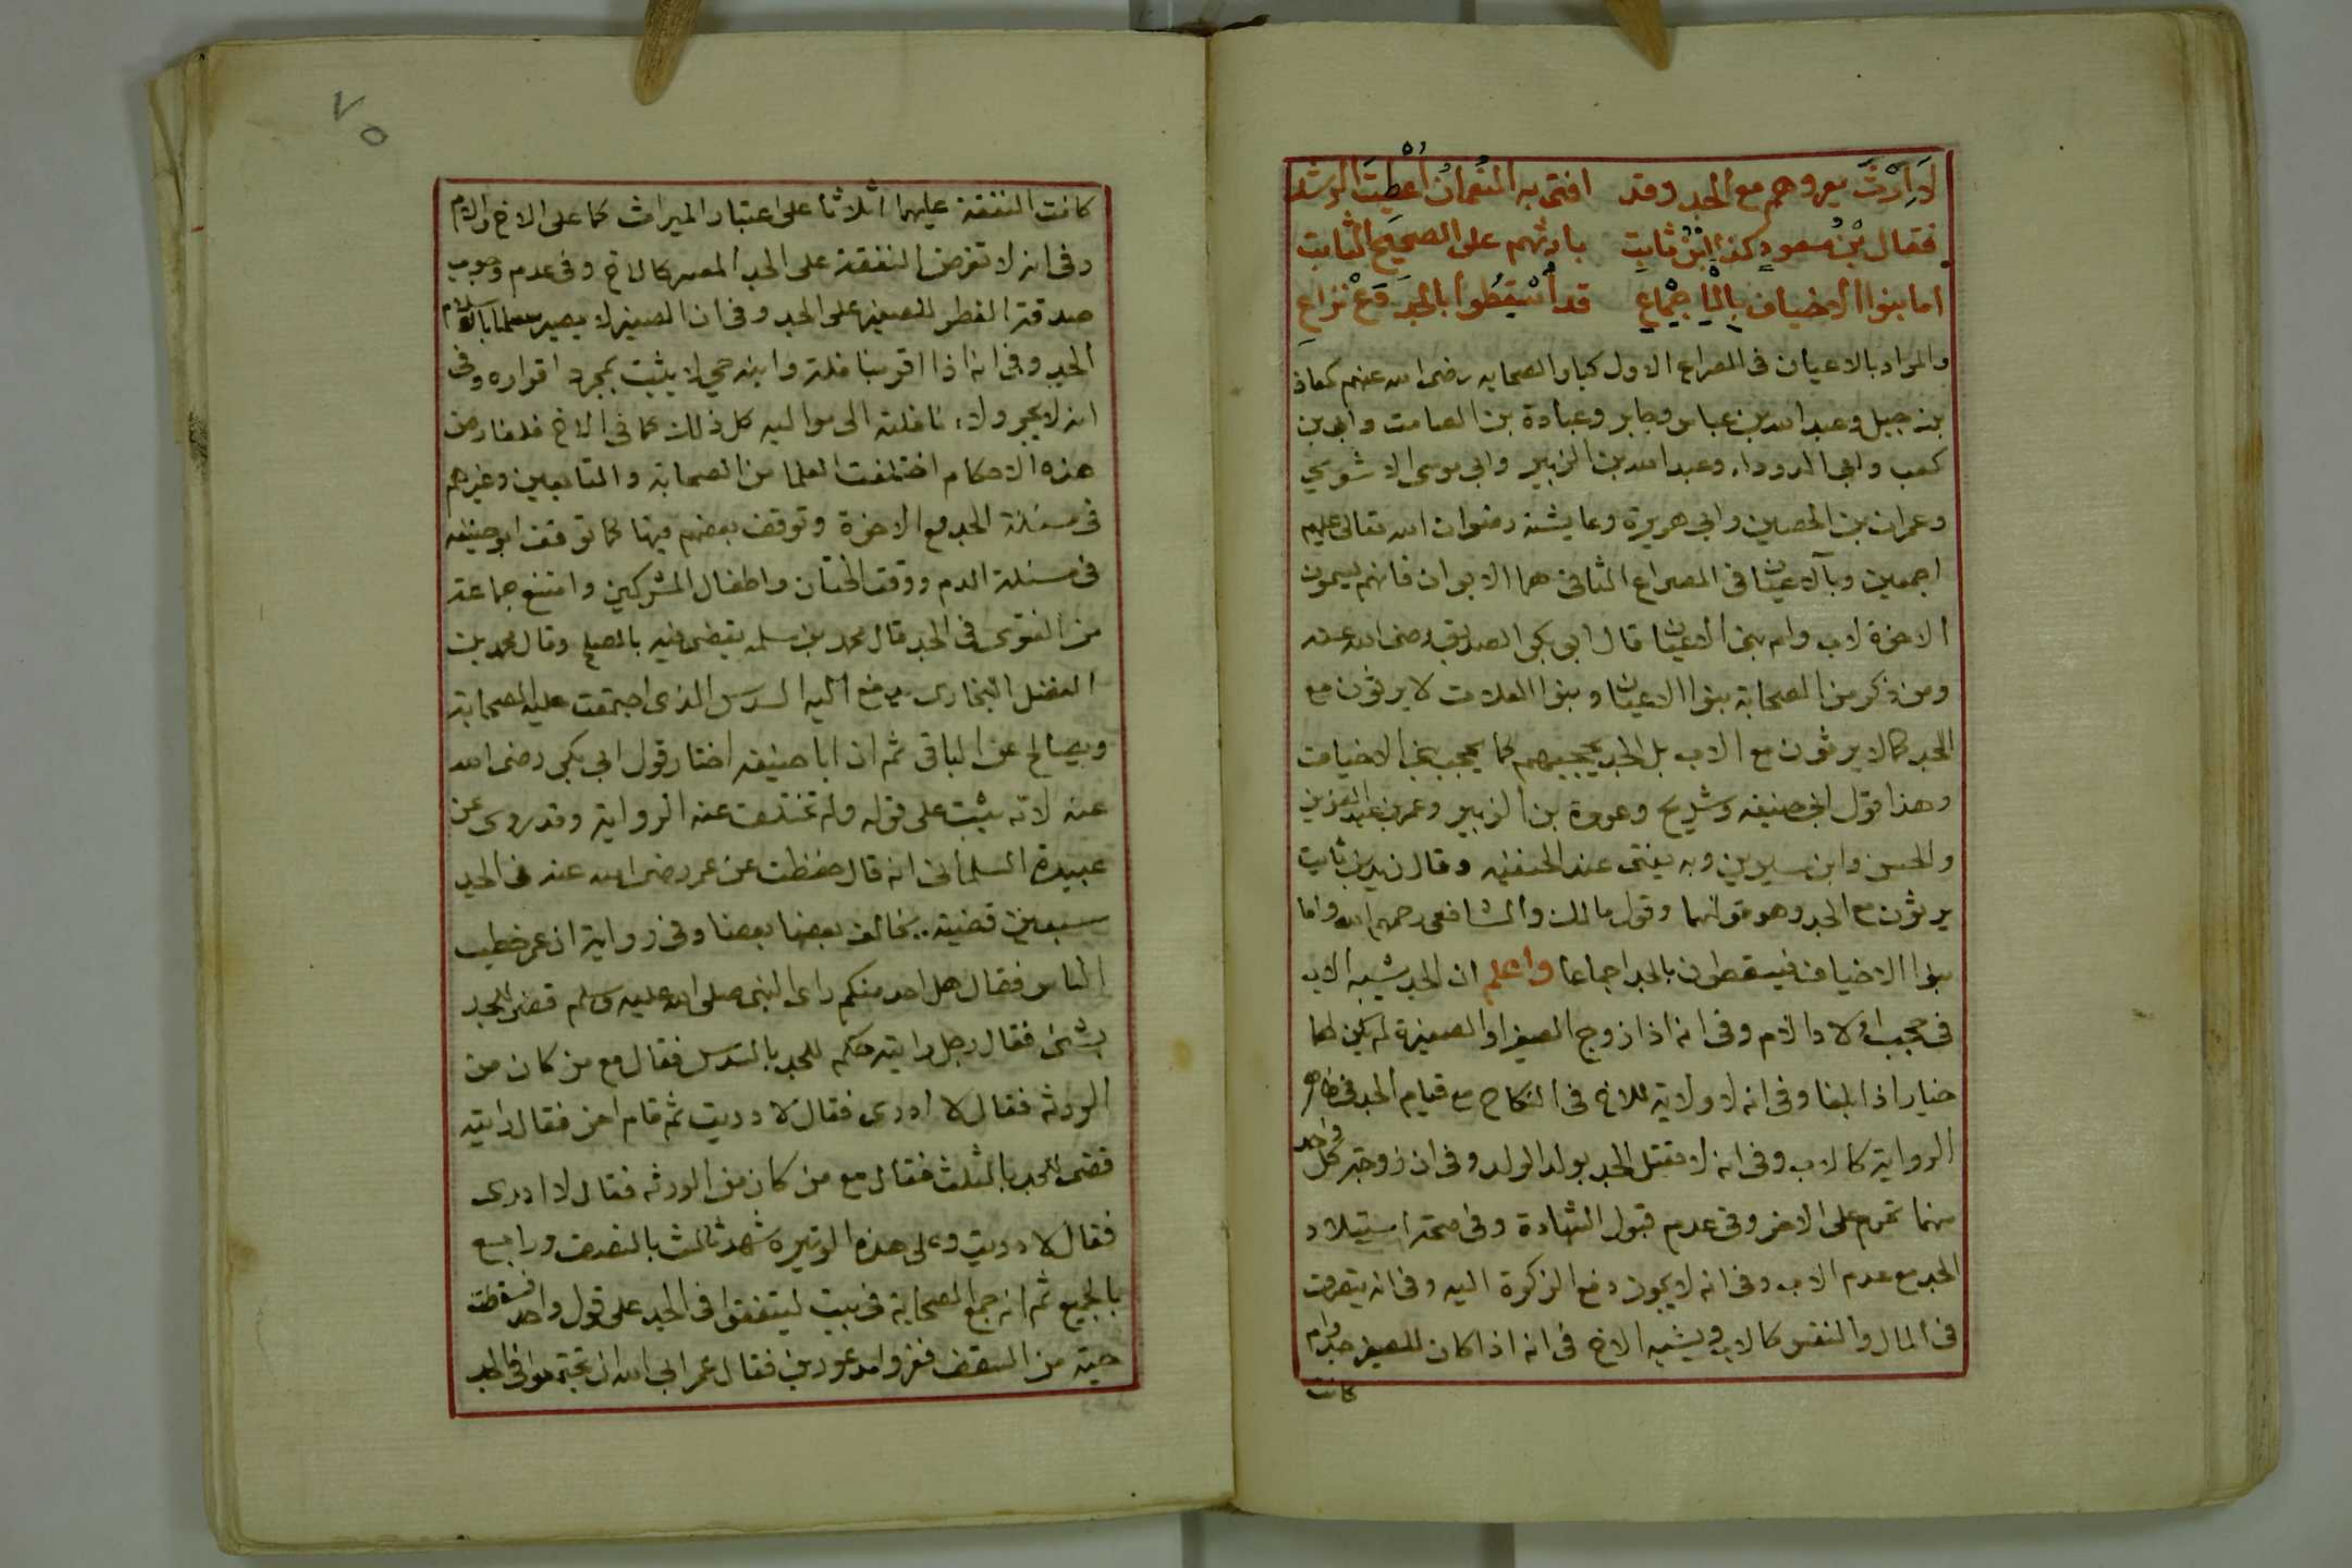 لَا إِرْثَ يعروهم مع الجد وقد افتى به النُعْمَانُ أُعْطِيتَ الرشد
فقال بْنُ مسعودٍ كذا ابْنُ ثابتِ بارثهم على الصحيح الثابتِ
اما بنوا الاخياف بِالْإِجْمَاعِ قد أُسْقِطُوا بالجَدِّ دَعْ نزاعِ
والمراد بالاعيان فى المصراع الاول كبار الصحابه رضى الله عنهم كمعاذ
بن جبل وعبد الله بن عباس وجابر وعبادة بن الصامت وابى بن
كعب وابى الدرداء وعبد الله بن الزبير وابى موسى الاشعري
وعمران بن الحصين وابى هريرة وعايشة رضوان الله تعالى عليهم
اجمعين وبالاعيان فى المصراع الثانى هما الابوان فانهم يسمون
الاخوة لاب وام بنى الاعيان قال ابى بكر الصديق رضى الله عنه
ومن ذكر من الصحابة بنوا الاعيان وبنوا العلات لا يرثون مع
الجد كما لا يرثون مع الاب بل الجد يحجبهم كما يحجب بنى الاخياف
وهذا قول ابى حنيفه وشريح وعروة بن الزبير وعمر بن عبد العزيز
والحسن وابن سيرين وبه يفتى عند الحنفيه وقال زيد بن ثابت
يرثون مع الجد وهو قولهما وقول مالك والشافعى رحمهم الله واما
بنوا الاخياف فيسقطون بالجد اجماعا واعلم ان الجد يشبه الاب
فى حجب اولاد الام وفى انه اذا زوج الصغير او الصغيرة لم يكن لهما
خيار اذا بلغا وفى انه لا ولاية للاخ فى النكاح مع قيام الجد فى ظاهر
الرواية كالاب وفى انه لا يقتل الجد بولد الولد وفى ان زوجة كل واحد
منهما تحرم على الاخر وفى عدم قبول الشهادة وفى صحة استيلاد
الجد مع عدم الاب وفى انه لا يجوز دفع الزكوة اليه وفى انه يتصرف
فى المال والنفس كالاب ويشبه الاخ فى انه اذا كان للصغير جد وام
كانت
٧٥
كانت النفقة عليهما اثلاثا على اعتبار الميراث كما على الاخ والام
وفى انه لا تفرض النفقة على الجد المعسر كالاخ وفى عدم وجوب
صدقة الفطر للصغير على الجد وفى ان الصغير لا يصير مسلما باسلام
الجد وفى انه اذا اقر بنافلة وابنه حي لا يثبت بمجرد اقراره وفى
انه لا يجر ولاء نافلته الى مواليه كل ذلك كما فى الاخ فلتعارض
هذه الاحكام اختلفت العلما من الصحابة والتابعين وغيرهم
فى مسئلة الجد مع الاخوة وتوقف بعضهم فيها كما توقف ابو حنيفه
فى مسئلة الدم ووقت الختان واطفال المشركين وامتنع جماعة
من الفتوى فى الجد قال محمد بن سلمه يقضى فيه بالصلح وقال محمد بن
الفضل البخارى يدفع اليه السدس الذى اجتمعت عليه الصحابة
ويصالح عن الباقى ثم ان ابا حنيفه اختار قول ابى بكر رضى الله
عنه لانه ثبت على قوله ولم تختلف عنه الرواية وقد روى عن
عبيدة السلمانى انه قال حفظت عن عمر رضى الله عنه فى الجد
سبعين قضية يخالف بعضها بعضا وفى رواية ان عمر خطب
الناس فقال هل احد منكم راى النبى صلى الله عليه وسلم قضى للجد
بشئ فقال رجل رايته حكم للجد بالسدس فقال مع من كان من
الورثه فقال لا ادرى فقال لا دريت ثم قام اخر فقال رايته
قضى للجد بالثلث فقال مع من كان من الورثه فقال لا ادرى
فقال لا دريت وعلى هذه الوتيره شهد ثالث بالنصف ورابع
بالجميع ثم انه جمع الصحابة فى بيت ليتفقوا فى الجد على قول واحد فسقطت
حية من السقف فتفرقوا مذعورين فقال عمر ابى الله ان تجتمعوا فى الجد